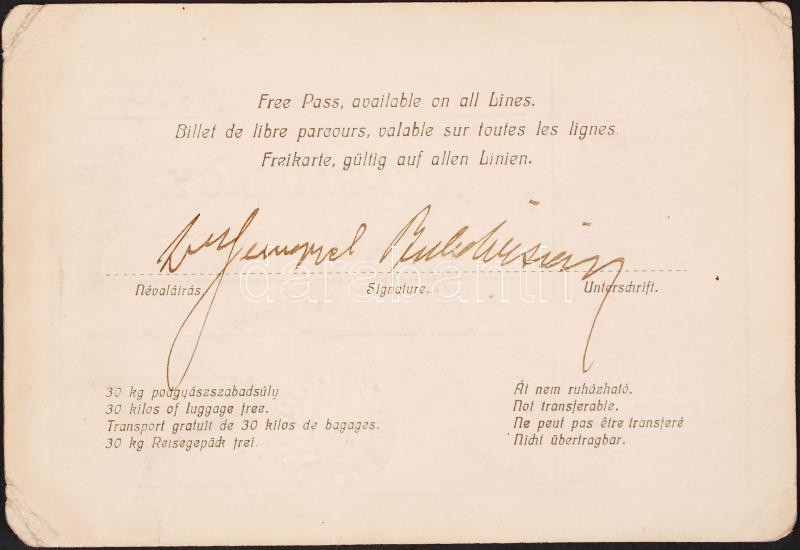 Free Pass, available on all Lines.
Billet de libre parcours, valable sur toutes les lignes.
Freikarte, gültig auf allen Linien.
Dr
darabanth
Névaláírás. Signature. Unterschrift.
30 kg podgyászszabadsúly
30 kilos of luggage free.
Transport gratuit de 30 kilos de bagages.
30 kg Reisegepäck frei.
Át nem ruházható.
Not transferable.
Ne peut pas être transferé
Nicht übertragbar.